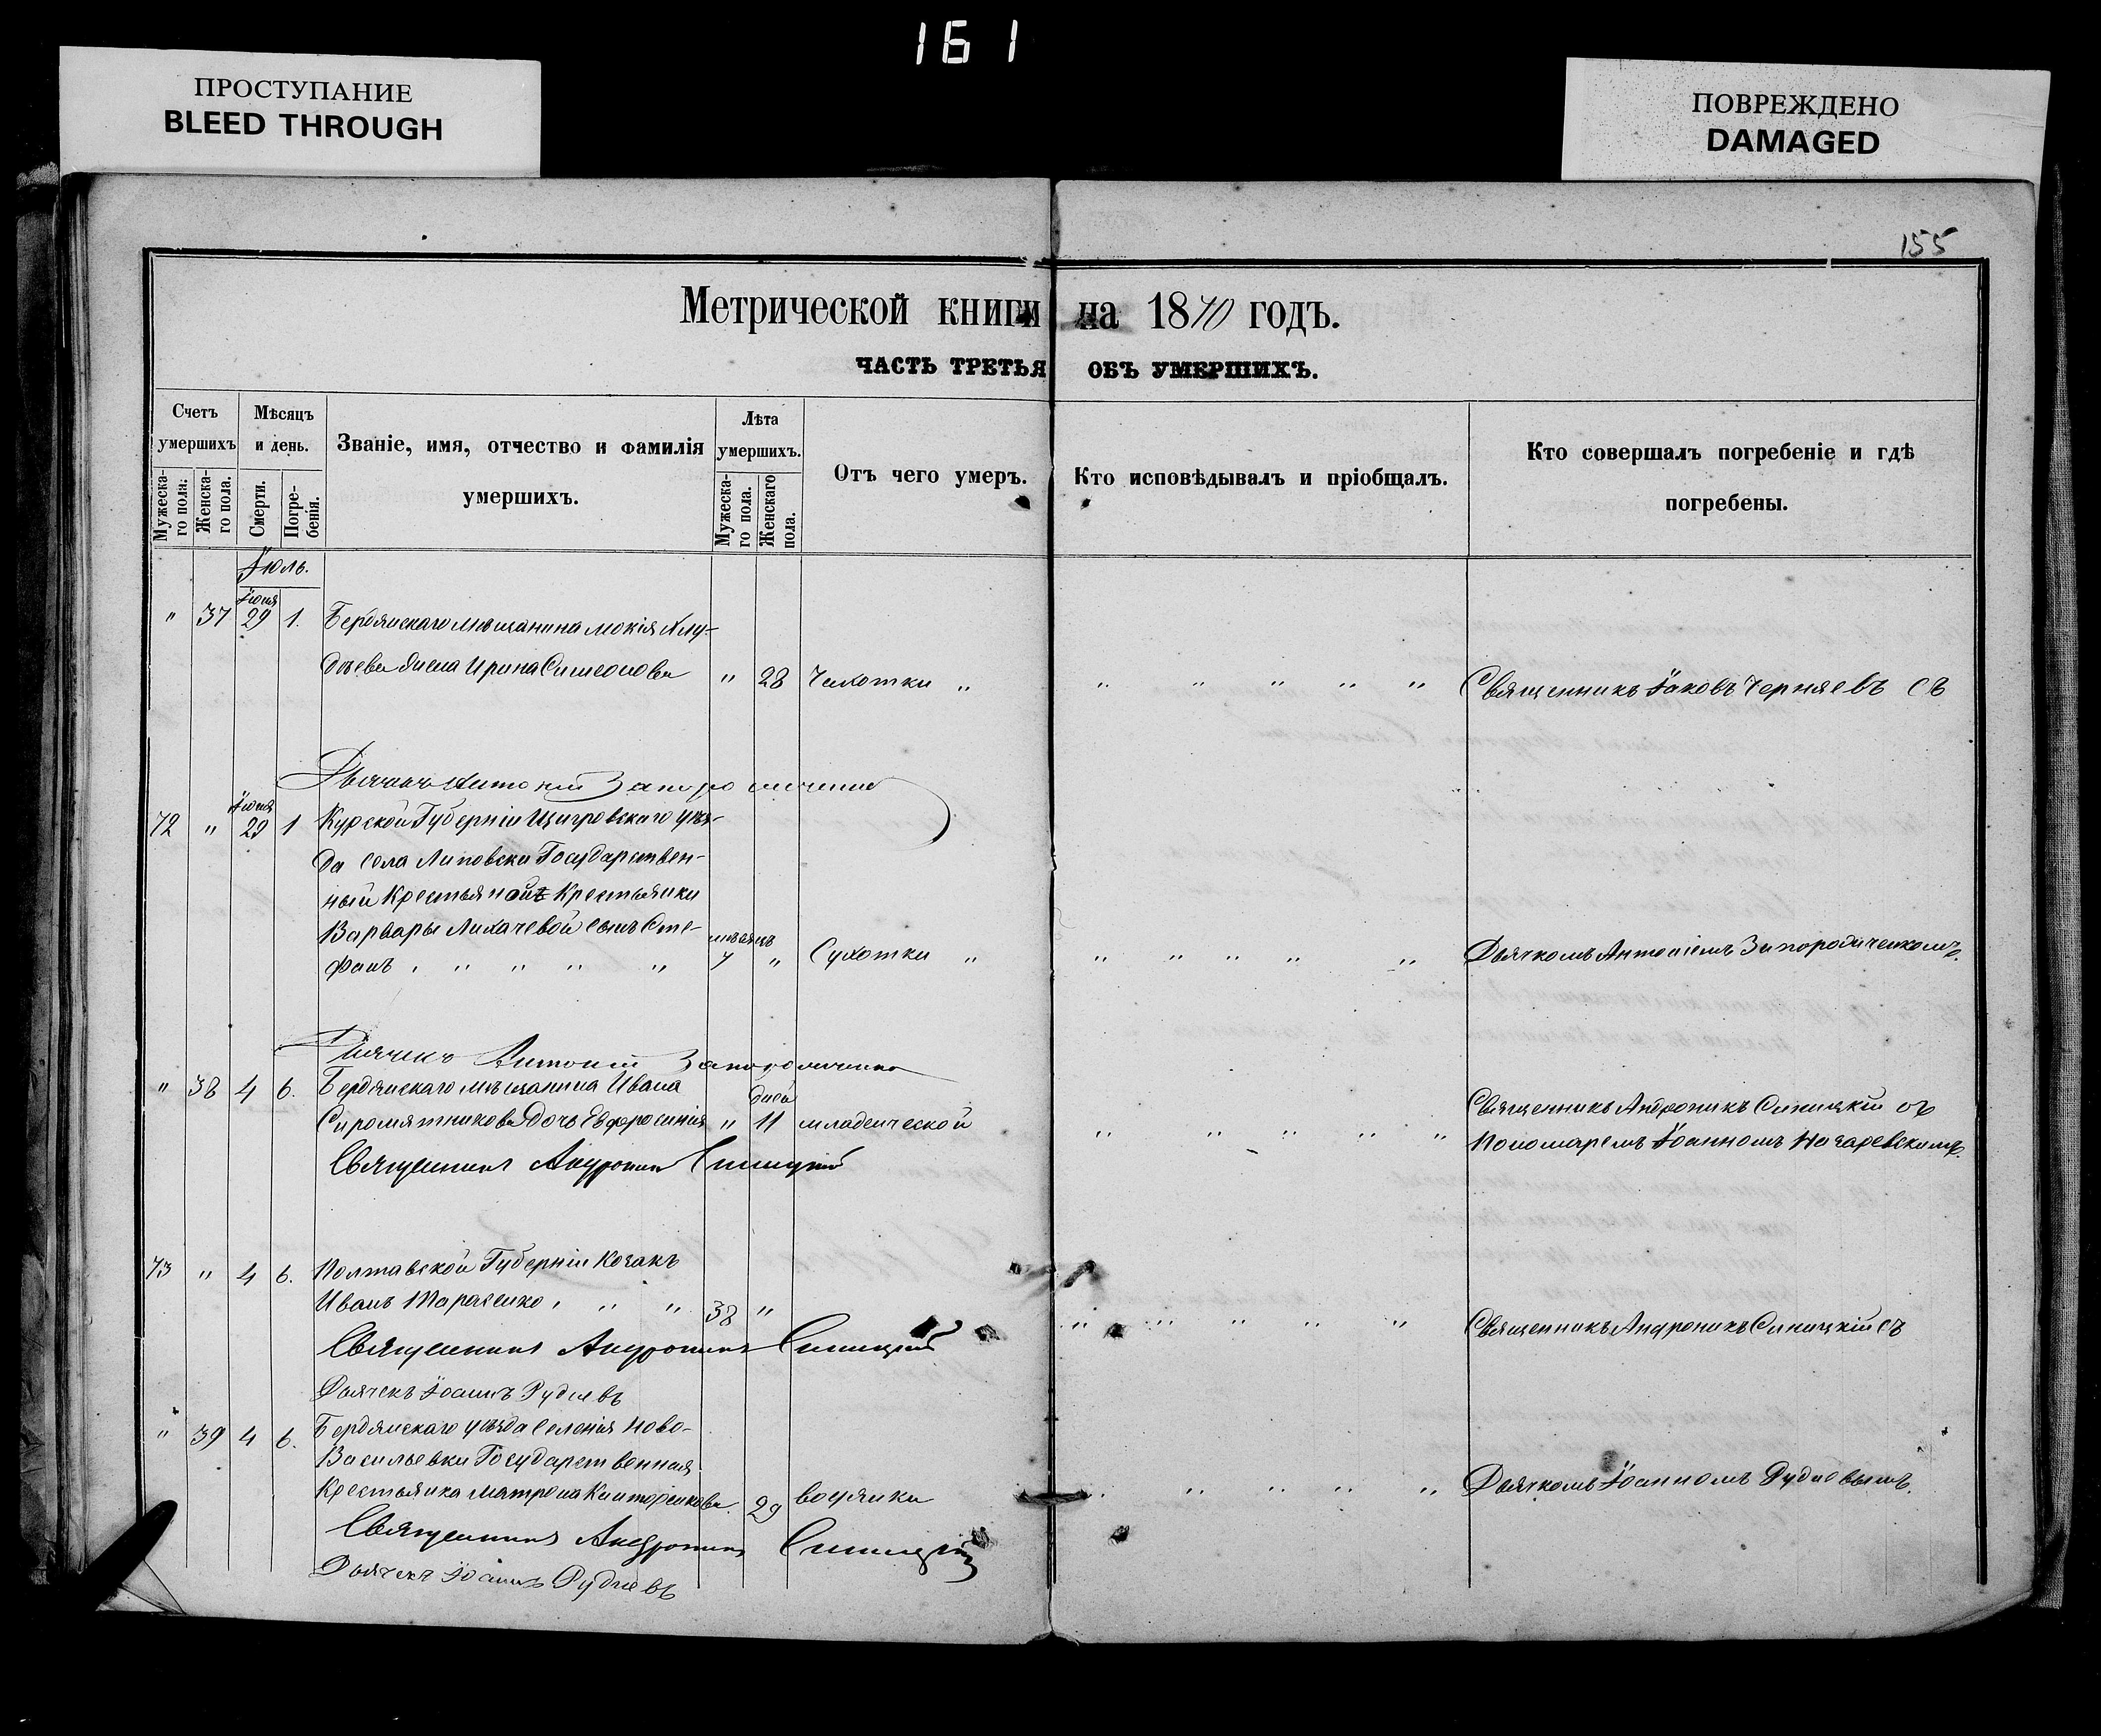 161
ПРОСТУПАНИЕ
BLEED THROUGH
ПОВРЕЖДЕНО
DAMAGED
155
Метрической книги на 1870 годъ.
ЧАСТЬ ТРЕТЬЯ ОБЪ УМЕРШИХЪ.
Счетъ умершихъ
Мужеска-го пола.
Женска-го пола.
Мѣсяцъ и день.
Смерти.
Погре-бенія.
Званіе, имя, отчество и фамилія умершихъ.
Лѣта умершихъ.
Мужеска-го пола.
Женскаго пола.
Отъ чего умеръ.
Кто исповѣдывалъ и пріобщалъ.
Кто совершалъ погребеніе и гдѣ погребены.
Іюль.
Іюня
" 37 29 1. Бердянскаго мѣщанина Мокія
жена Ирина Симеонова " 28 Чахотки " " " " " " Священникъ Іаковъ Черняевъ съ
Дьячокъ Антоній
Іюня
72 " 29 1 Курской Губерніи Щигровскаго уѣз-
да села Липовски Государствен-
ный Крестьянской Крестьянки
Варвары Лихачевой сынъ Сте- мѣсяцъ
фанъ " " " " " 7 " Сухотки " " " " " " Дьячкомъ Антоніемъ Запородиченкомъ.
Дьячекъ Антоній
" 38 4 6. Бердянскаго мѣщанина Ивана дней Священникъ Андроникъ Синицкій съ
Сиромятникова Дочь Евфросинія " 11 младенческой " " " " " Пономаремъ Іоанномъ
Священникъ Андроникъ Синицкій
73 " 4 6. Полтавской Губерніи Козакъ
Иванъ Тарасенко " " " 38 " " " " " " Священникъ Андроникъ Синицкій съ
Священникъ Андроникъ Синицкій
Дьячекъ Іоаннъ Рудневъ
" 39 4 6. Бердянскаго уѣзда Селенія Ново-
Васильевки Государственная
Крестьянка Матрона 29 водянки " " " " " Дьячкомъ Іоанномъ Рудневымъ.
Священникъ Андроникъ Синицкій
Дьячекъ Іоаннъ Рудневъ